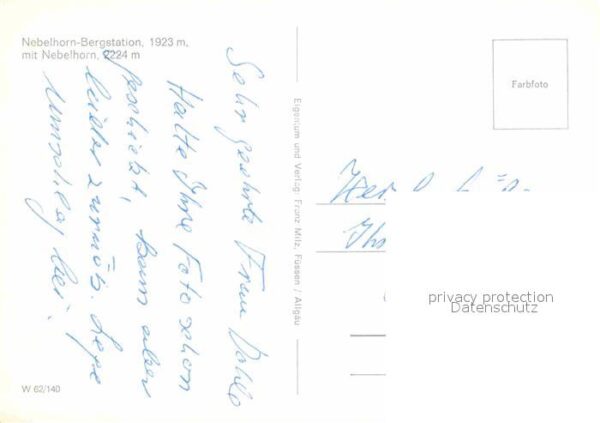 Nebelhorn-Bergstation, 1923 m,
mit Nebelhorn, 2224 m
Sehr geehrte Frau
Hatte Ihre Foto schon
geschickt, kam aber
leider zurück. Lege
Umschlag bei.
Eigentum und Verlag: Franz Milz, Füssen / Allgäu
Farbfoto
privacy protection
Datenschutz
W 62/140